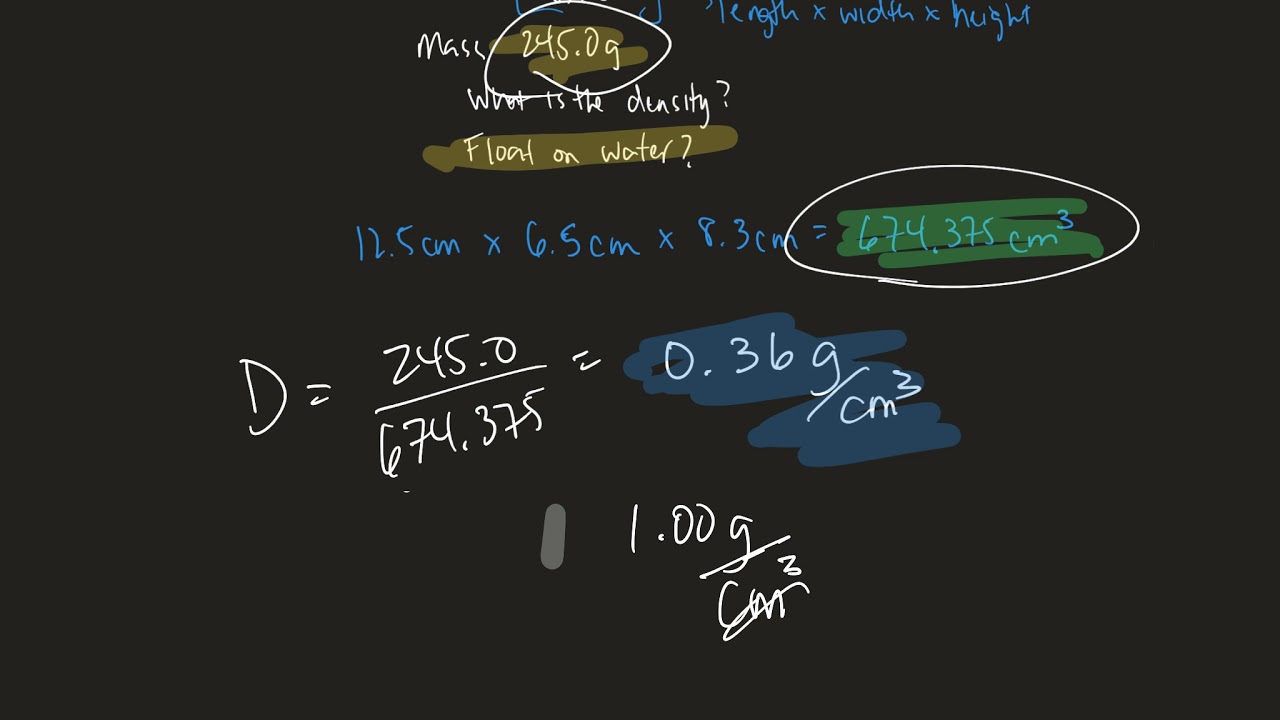 length x width x height
Mass 245.0g
What is the density?
Float on water?
12.5cm x 6.5cm x 8.3cm = 674.375 cm³
D = 245.0/674.375 = 0.36 g/cm³
1.00 g/cm³